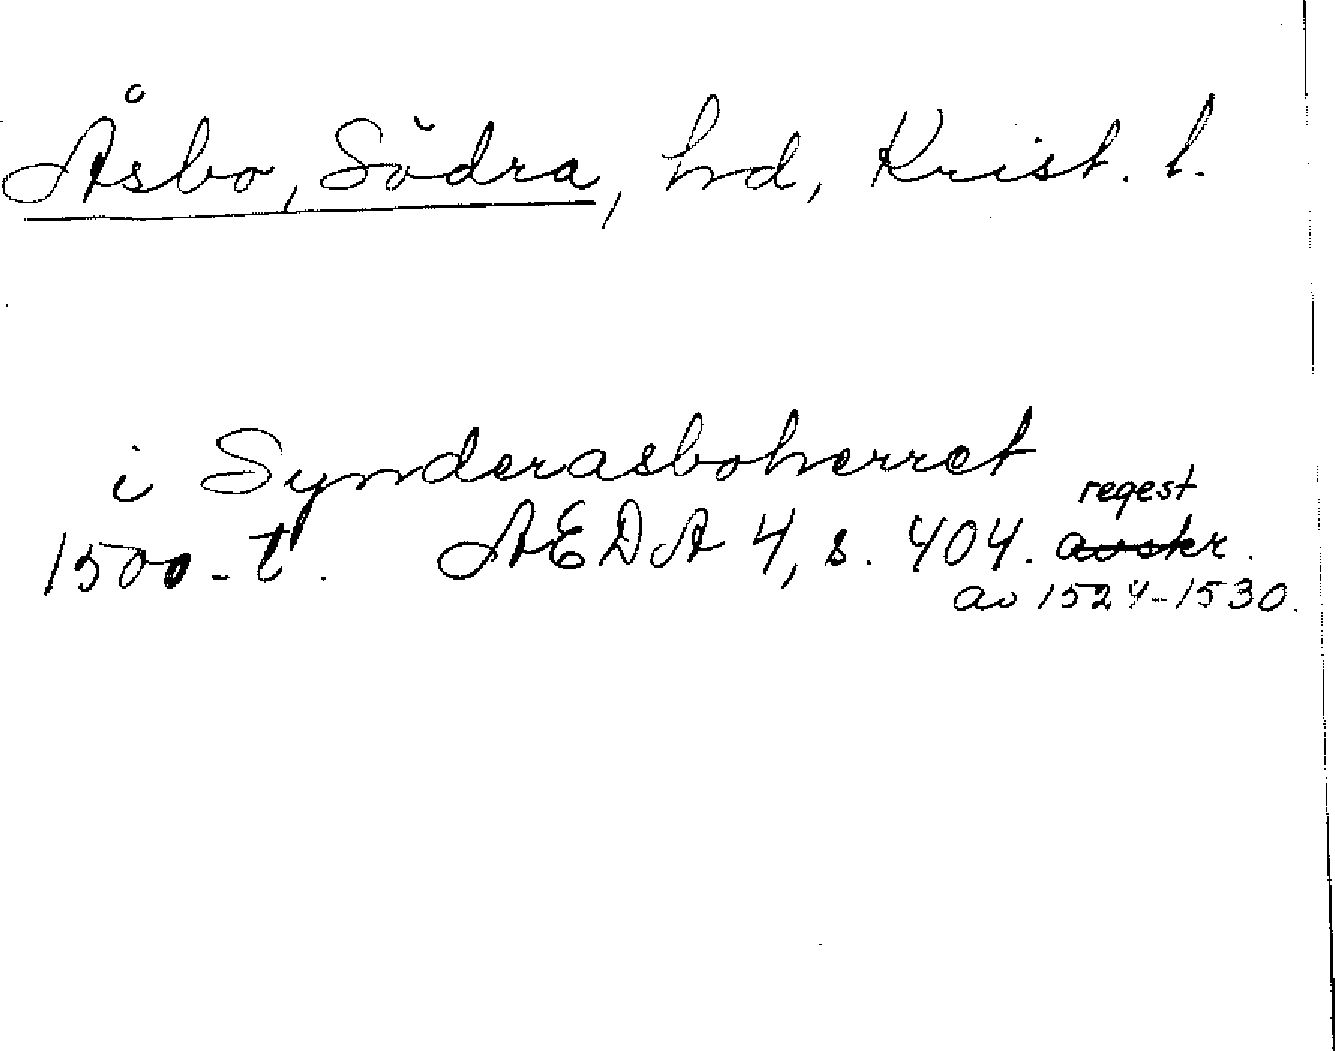 Åsbo, Södra, hd, Krist. l.
i Synderasboherret
1500-t. AEDA 4, s. 404. regest avskr.
av 1524-1530.